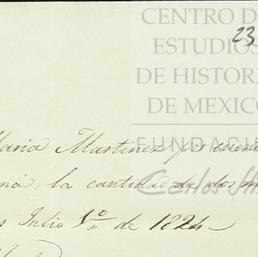 CENTRO DE
ESTUDIOS
DE HISTOR
DE MEXICO
FUNDACI
Carlos Sl
23
Maria Martinez por cuen
la cantidad de dos m
Julio 1º de 1824